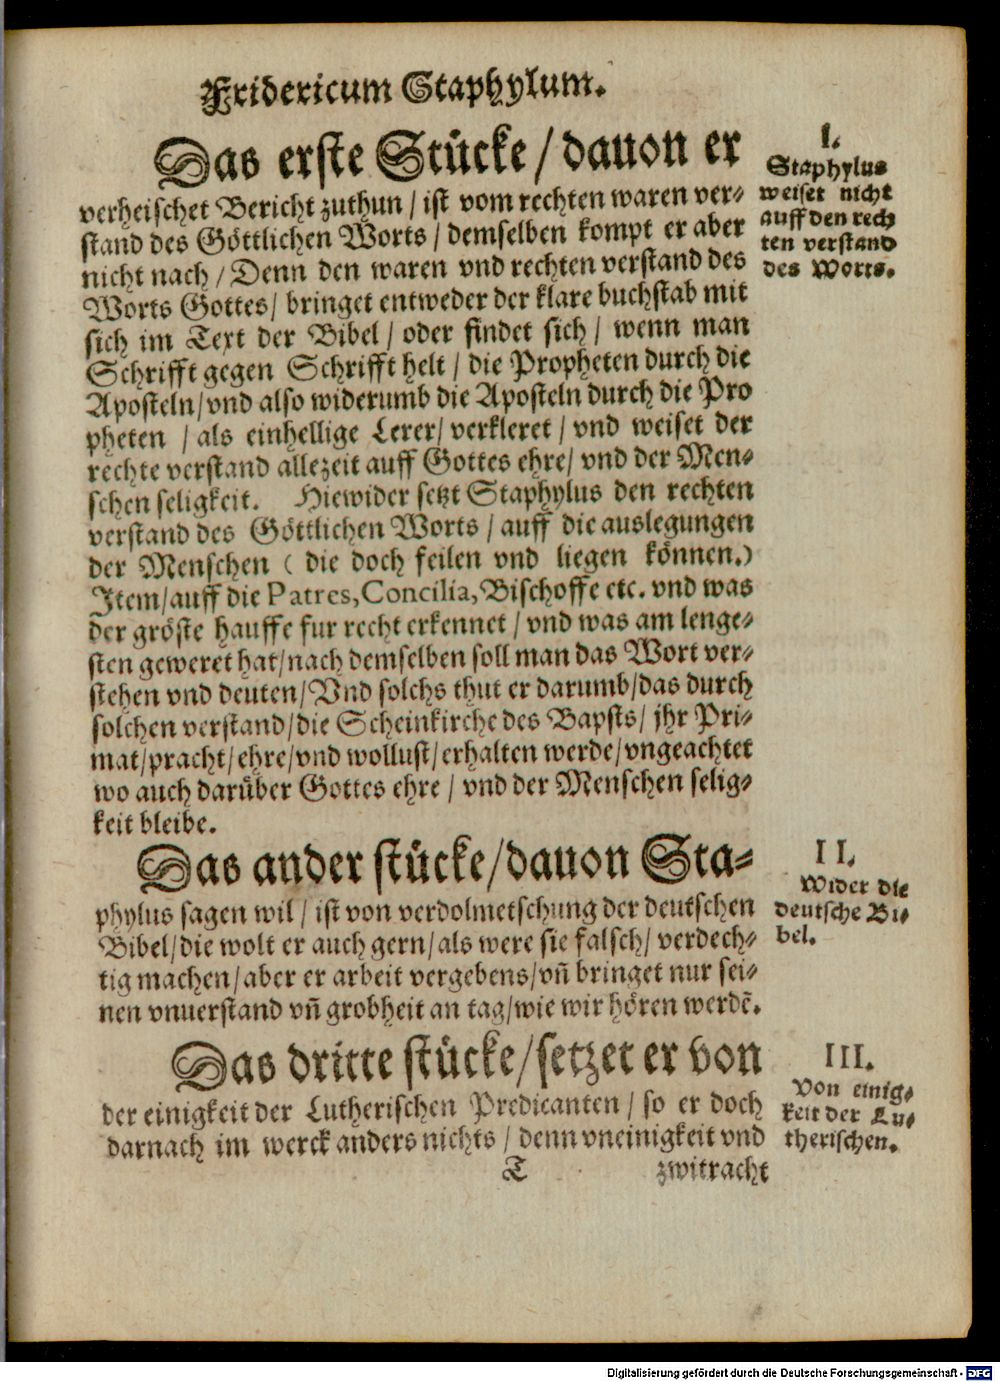 Fridericum Staphylum.
Das erste Stücke / dauon er
verheischet Bericht zuthun / ist vom rechten waren ver-
stand des Göttlichen Worts / demselben kompt er aber
nicht nach / Denn den waren vnd rechten verstand des
Worts Gottes / bringet entweder der klare buchstab mit
sich im Text der Bibel / oder findet sich / wenn man
Schrifft gegen Schrifft helt / die Propheten durch die
Aposteln / vnd also widerumb die Aposteln durch die Pro
pheten / als einhellige Lerer / verkleret / vnd weiset der
rechte verstand allezeit auff Gottes ehre / vnd der Men-
schen seligkeit. Hiewider setzt Staphylus den rechten
verstand des Göttlichen Worts / auff die auslegungen
der Menschen ( die doch feilen vnd liegen können.)
Item / auff die Patres, Concilia, Bischoffe etc. vnd was
der gröste hauffe fur recht erkennet / vnd was am lenge-
sten geweret hat / nach demselben soll man das Wort ver-
stehen vnd deuten / Vnd solchs thut er darumb / das durch
solchen verstand / die Scheinkirche des Bapsts / jhr Pri-
mat / pracht / ehre / vnd wollust / erhalten werde / vngeachtet
wo auch darüber Gottes ehre / vnd der Menschen selig-
keit bleibe.
Das ander stücke / dauon Sta-
phylus sagen wil / ist von verdolmetschung der deutschen
Bibel / die wolt er auch gern / als were sie falsch / verdech-
tig machen / aber er arbeit vergebens / vñ bringet nur sei-
nen vnuerstand vñ grobheit an tag / wie wir hören werdẽ.
Das dritte stücke / setzet er von
der einigkeit der Lutherischen Predicanten / so er doch
darnach im werck anders nichts / denn vneinigkeit vnd
T zwitracht
I.
Staphylus
weiset nicht
auff den rech
ten verstand
des Worts.
II.
Wider die
deutsche Bi-
bel.
III.
Von einig-
keit der Lu-
therischen.
Digitalisierung gefördert durch die Deutsche Forschungsgemeinschaft - DFG